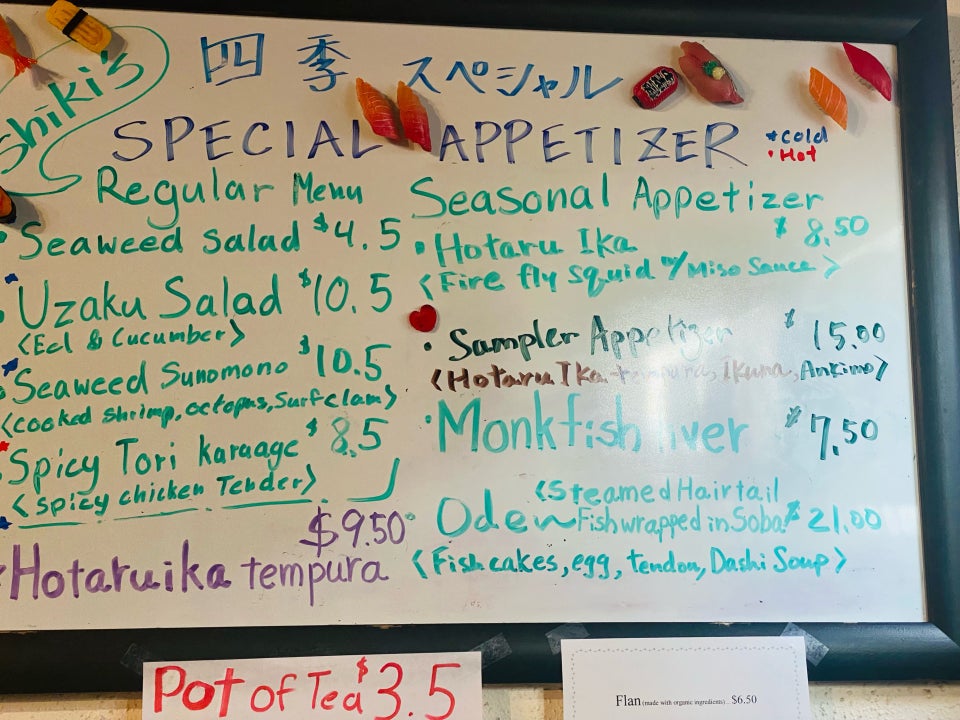 Shiki's
四季 スペシャル
SPECIAL APPETIZER
*Cold
•Hot
Regular Menu
Seaweed Salad $4.5
Uzaku Salad $10.5
<Eel & Cucumber>
Seaweed Sunomono $10.5
<cooked shrimp, octopus, Surf clam>
Spicy Tori karaage $8.5
<spicy chicken Tender>
$9.50
Hotaruika tempura
Seasonal Appetizer
• Hotaru Ika $8.50
<Fire fly squid w/ Miso Sauce>
• Sampler Appetizer $15.00
<Hotaru Ika tempura, Ikura, Ankimo>
• Monkfish liver $7.50
<Steamed Hairtail
Fish wrapped in Soba
• Oden $21.00
<Fish cakes, egg, tendon, Dashi Soup>
Pot of Tea $3.5
Flan (made with organic ingredients)... $6.50